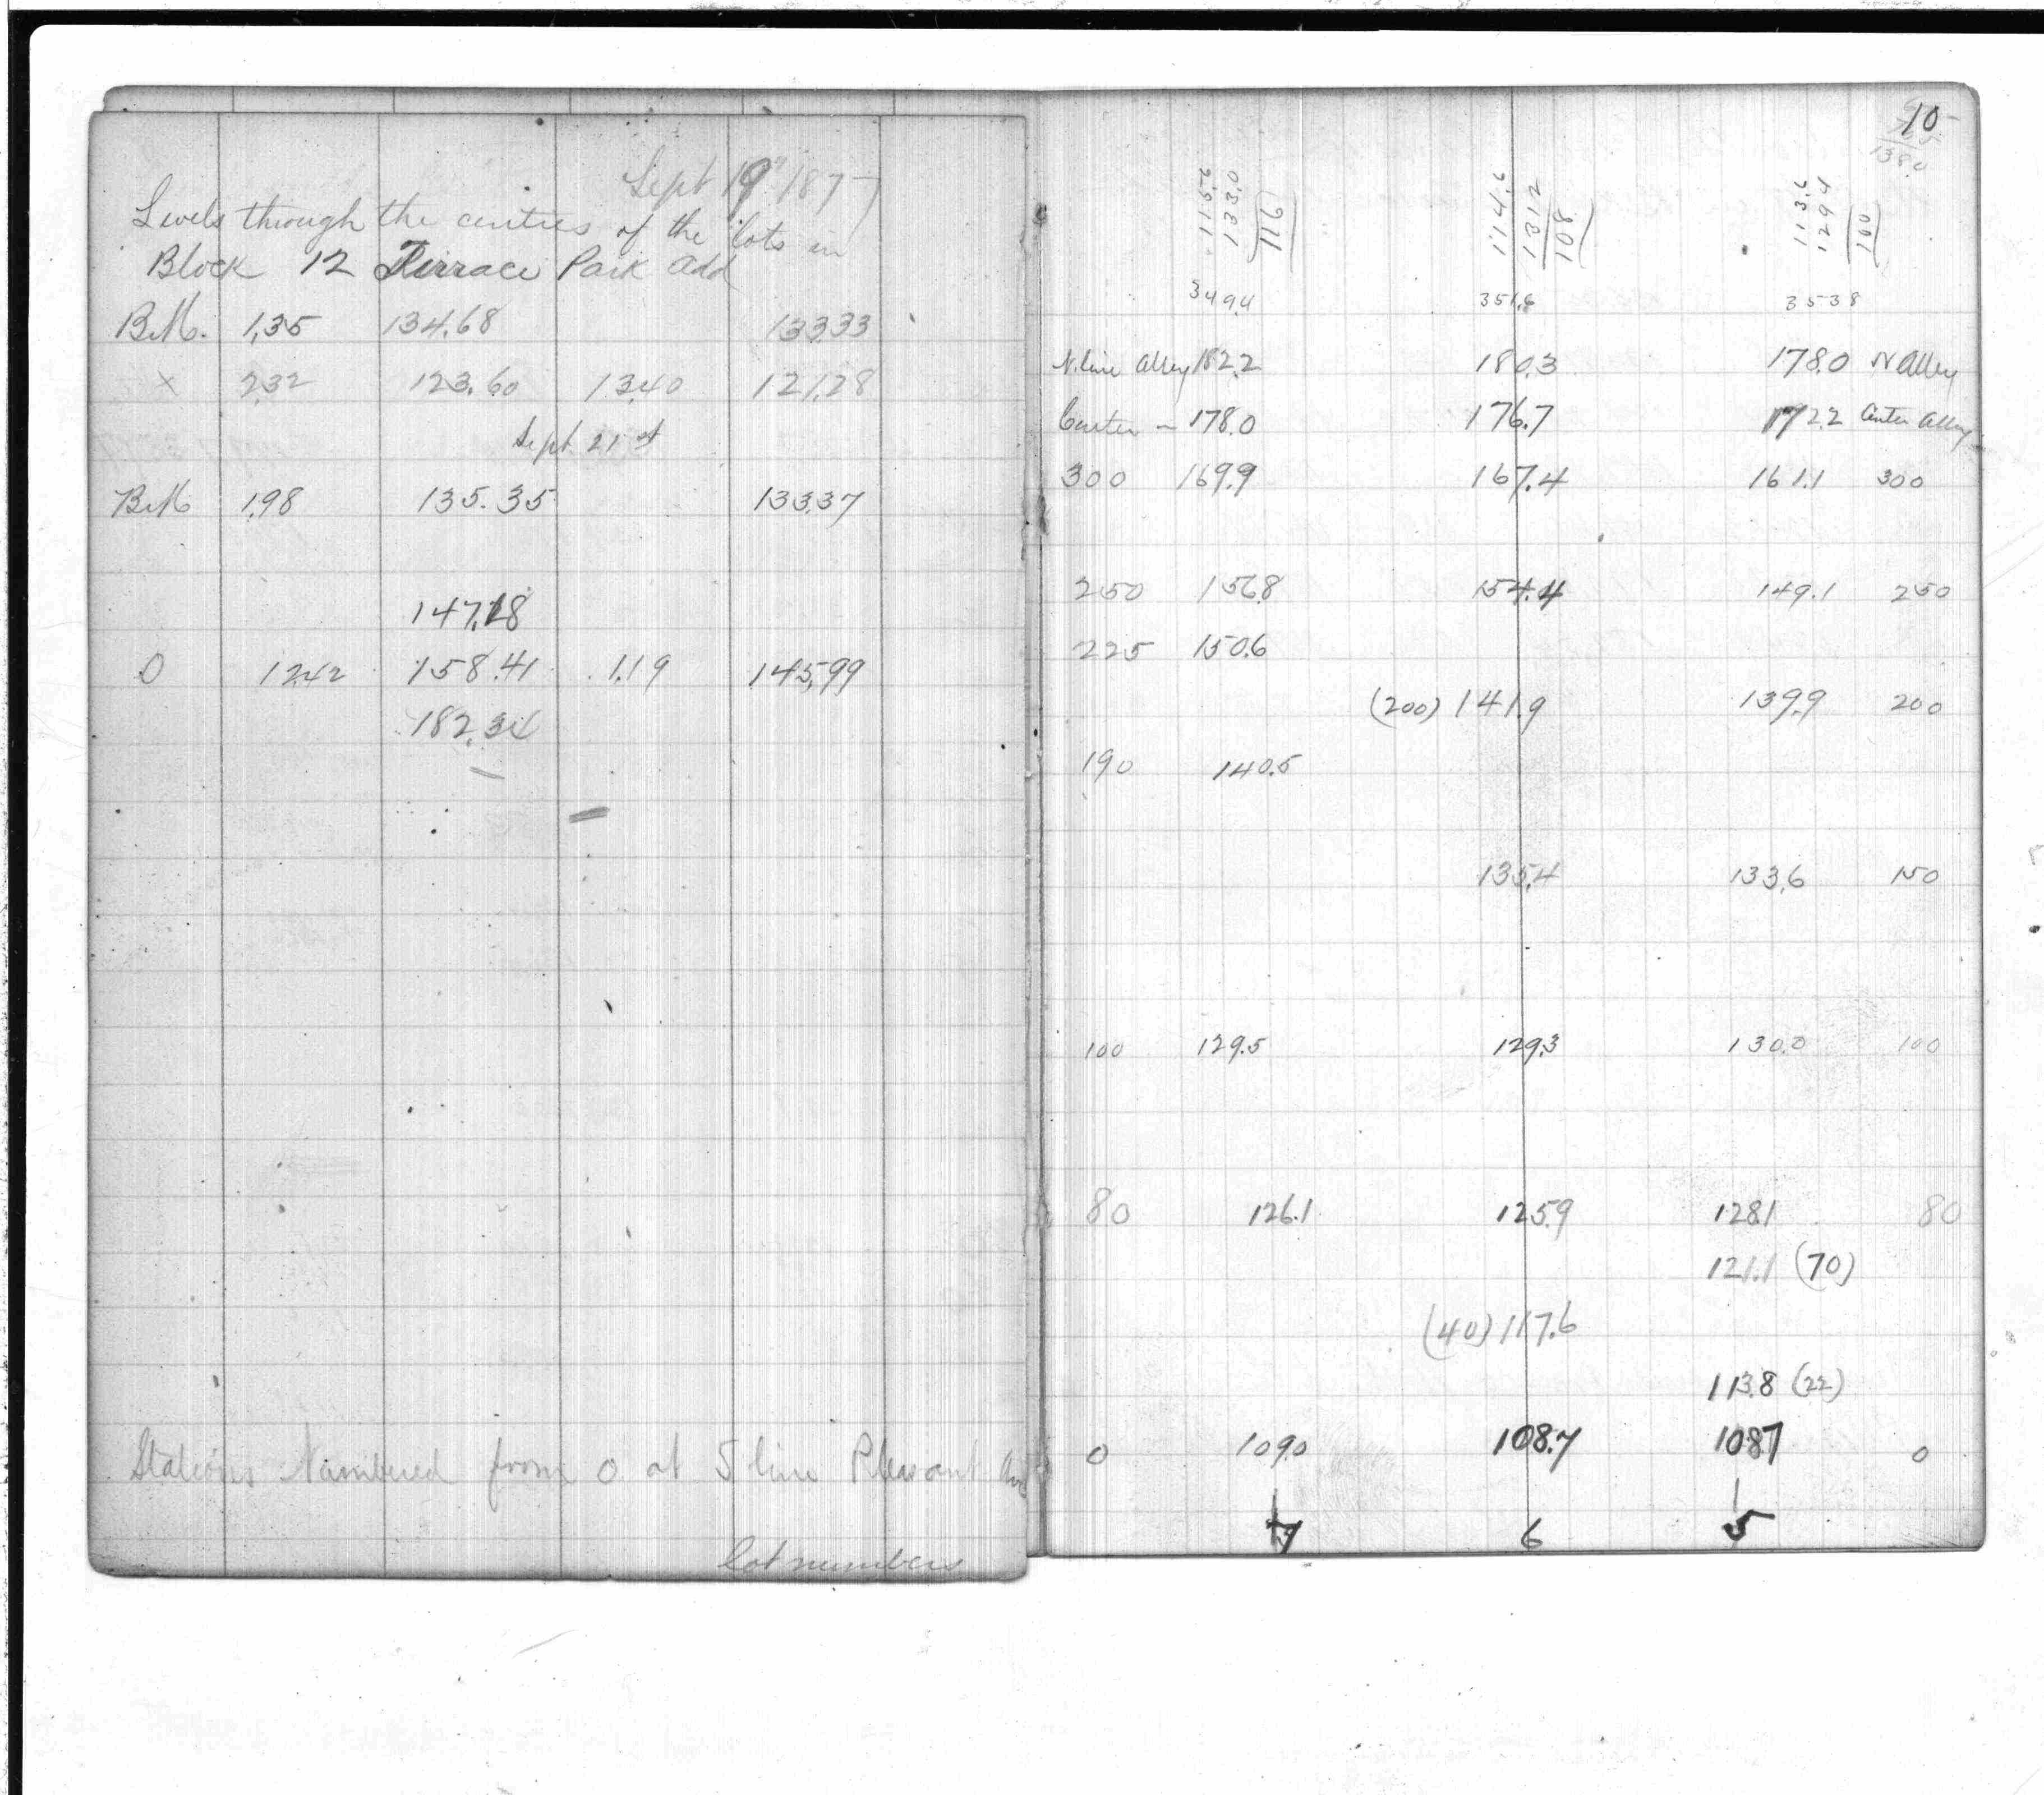 Sept 19th 1877
Levels through the centres of the lots in
Block 12 Terrace Park Add
B.M. 1,35 134.68 133.33
× 2,32 123.60 13,40 121,28
Sept 21st
B.M 1,98 135.35 133,37
147,18
O 12,42 158.41 1.19 145,99
182,34
Stations Numbered from 0 at S line Pleasant Ave
Lot numbers
10
138.0
115.6 114.6 113.6
133.0 131.2 129.4
116 108 100
349.4 351.6 353 8
N. line alley 182.2 180.3 178.0 N Alley
Center - 178.0 176.7 172.2 Center alley
300 169.9 167.4 161.1 300
250 156.8 154.4 149.1 250
225 150.6
(200) 141.9 139.9 200
190 140.5
135.4 133.6 150
100 129.5 129.3 130.0 100
80 126.1 125.9 128.1 80
121.1 (70)
(40) 117.6
113.8 (22)
0 109.0 108.7 108.7 0
7 6 5